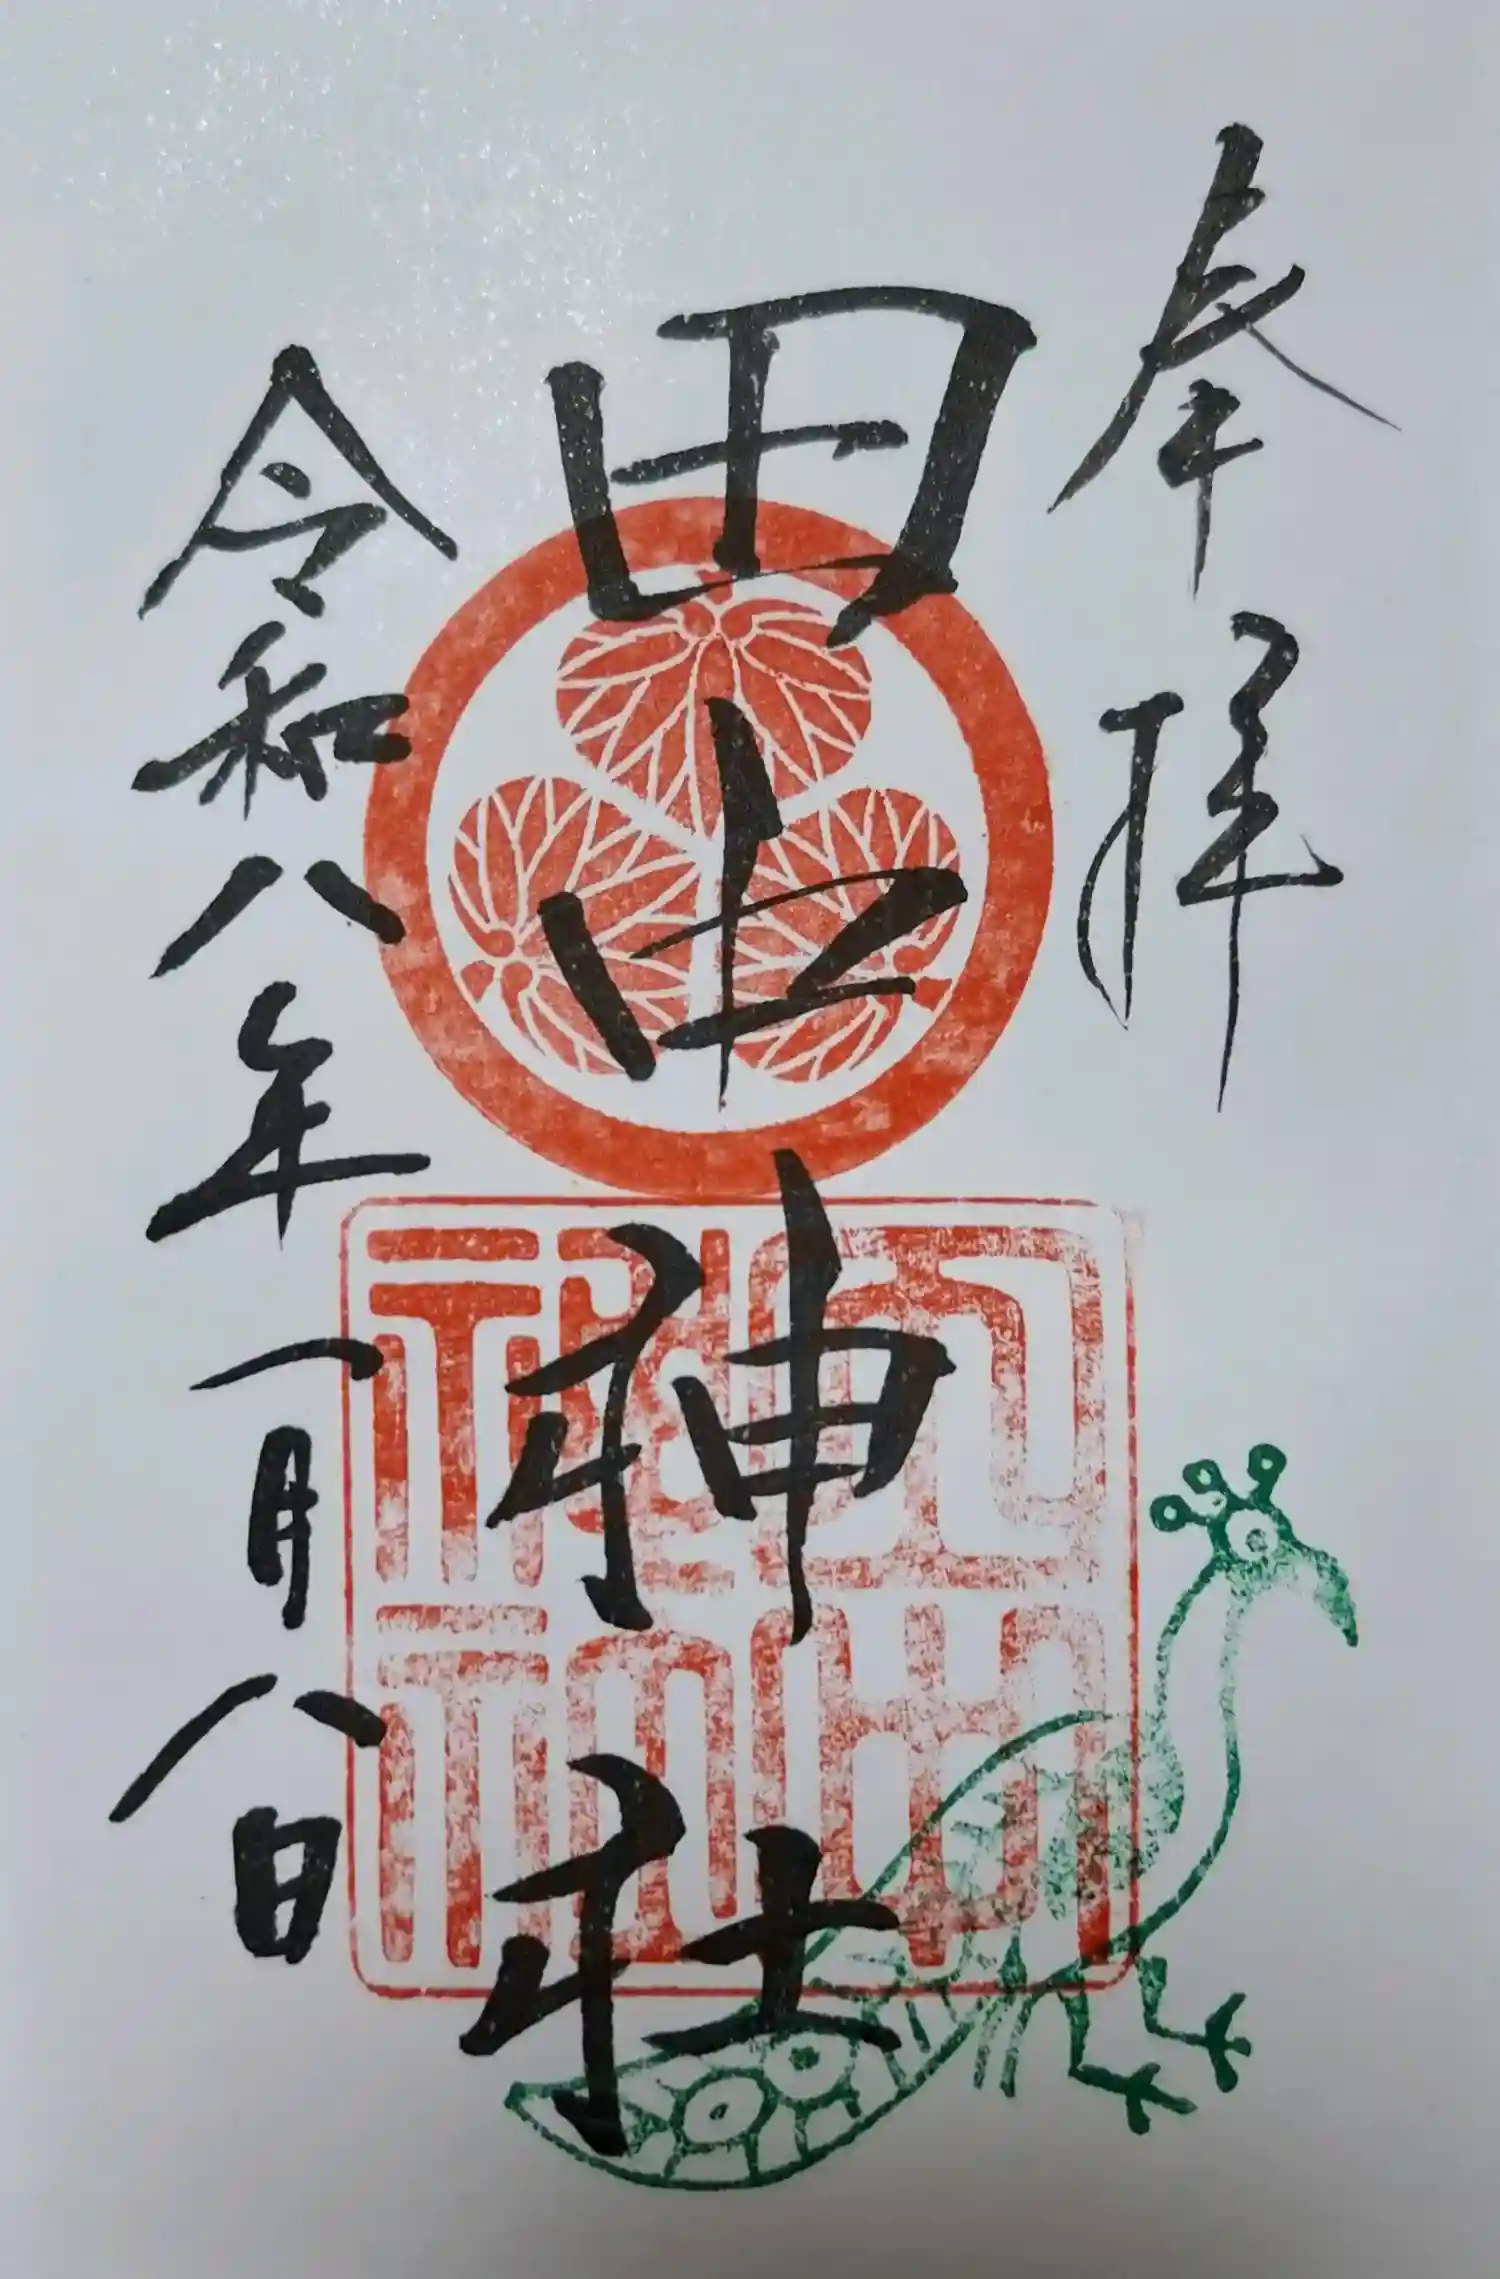 奉拝
田中神社
令和八年一月八日